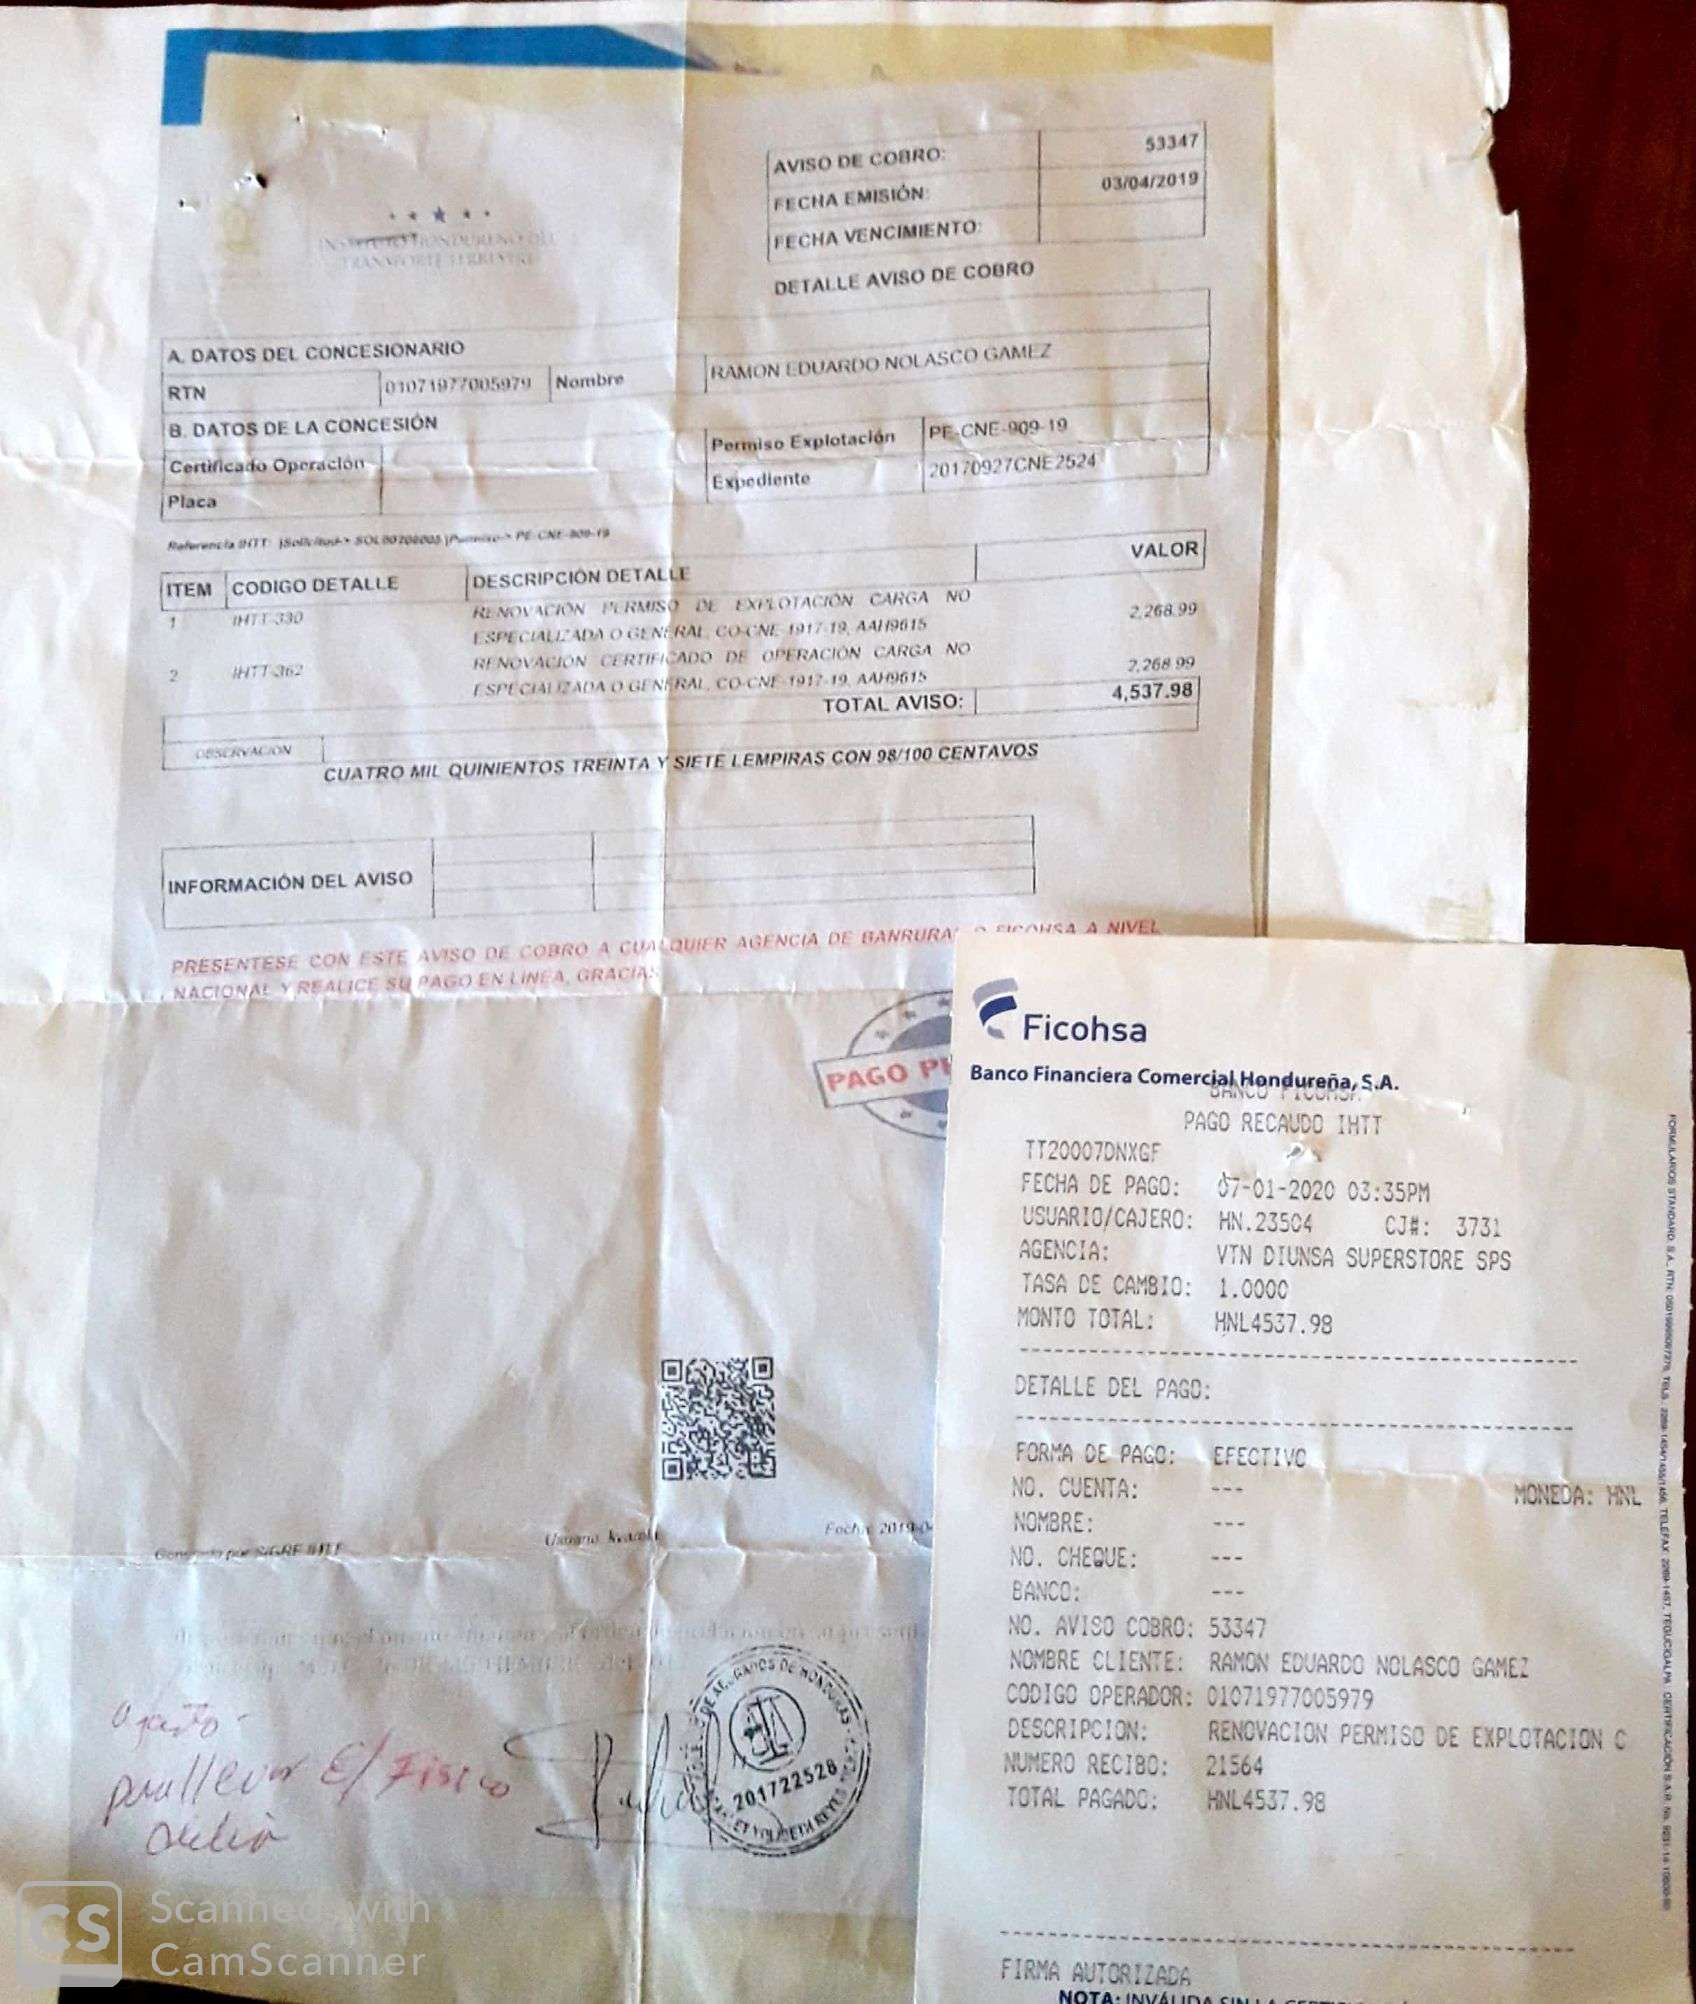 AVISO DE COBRO: 53347
FECHA EMISIÓN: 03/04/2019
FECHA VENCIMIENTO:
INSTITUTO HONDUREÑO DEL
TRANSPORTE TERRESTRE
DETALLE AVISO DE COBRO
A. DATOS DEL CONCESIONARIO
RTN 01071977005979 Nombre RAMON EDUARDO NOLASCO GAMEZ
B. DATOS DE LA CONCESIÓN
Certificado Operación Permiso Explotación PE-CNE-909-19
Placa Expediente 20170927CNE2524
Referencia IHTT: PE-CNE-909-19
ITEM CODIGO DETALLE DESCRIPCIÓN DETALLE VALOR
1 IHTT-330 RENOVACIÓN PERMISO DE EXPLOTACIÓN CARGA NO 2,268.99
ESPECIALIZADA O GENERAL, CO-CNE-1917-19, AAH9615
2 IHTT-362 RENOVACIÓN CERTIFICADO DE OPERACIÓN CARGA NO 2,268.99
ESPECIALIZADA O GENERAL, CO-CNE-1917-19, AAH9615
TOTAL AVISO: 4,537.98
OBSERVACION
CUATRO MIL QUINIENTOS TREINTA Y SIETE LEMPIRAS CON 98/100 CENTAVOS
INFORMACIÓN DEL AVISO
PRESENTESE CON ESTE AVISO DE COBRO A CUALQUIER AGENCIA DE BANRURAL O FICOHSA A NIVEL
NACIONAL Y REALICE SU PAGO EN LINEA, GRACIAS
PAGO PE
Generado por
Usuario:
Fecha: 2019-0
201722528
Ficohsa
Banco Financiera Comercial Hondureña, S.A.
BANCO FICOHSA
PAGO RECAUDO IHTT
TT20007DNXGF
FECHA DE PAGO: 07-01-2020 03:35PM
USUARIO/CAJERO: HN.23504 CJ#: 3731
AGENCIA: VTN DIUNSA SUPERSTORE SPS
TASA DE CAMBIO: 1.0000
MONTO TOTAL: HNL4537.98
DETALLE DEL PAGO:
FORMA DE PAGO: EFECTIVO
NO. CUENTA: --- MONEDA: HNL
NOMBRE: ---
NO. CHEQUE: ---
BANCO: ---
NO. AVISO COBRO: 53347
NOMBRE CLIENTE: RAMON EDUARDO NOLASCO GAMEZ
CODIGO OPERADOR: 01071977005979
DESCRIPCION: RENOVACION PERMISO DE EXPLOTACION C
NUMERO RECIBO: 21564
TOTAL PAGADO: HNL4537.98
FIRMA AUTORIZADA
NOTA: INVÁLIDA SIN LA
CS Scanned with
CamScanner